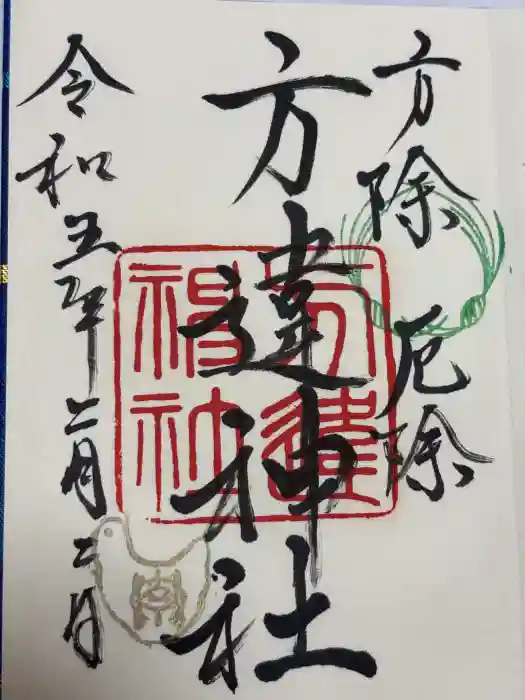 方除 厄除
方違神社
令和五年二月二日
方違
神社